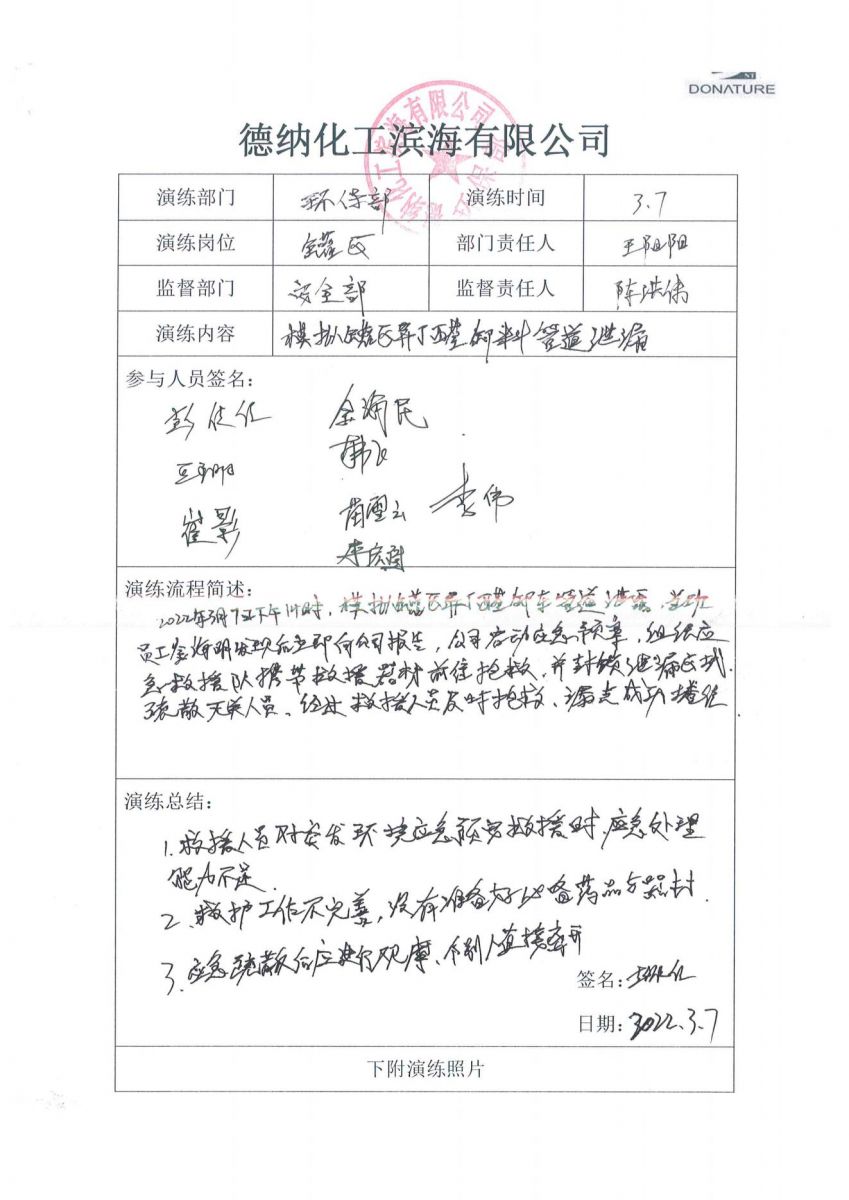 DONATURE
德纳化工滨海有限公司
演练部门 环保部 演练时间 3.7
演练岗位 罐区 部门责任人 王阳阳
监督部门 安全部 监督责任人 陈洪伟
演练内容 模拟罐区异丁醛卸料管道泄漏
参与人员签名：
李伟
崔影
演练流程简述：
2022年3月7日下午14时，模拟罐区异丁醛卸车管道泄漏，当班
员工发现后立即向公司报告，公司启动应急预案，组织应
急救援队携带救援器材前往抢救，并封锁泄漏区域，
疏散无关人员、经过救援人员及时抢救、漏点成功堵住
演练总结：
1.救援人员对突发环境应急预案救援时，应急处理
能力不足.
2、救护工作不完善，没有准备好必备药品与器材.
3、应急疏散后应进行观摩、个别人直接离开
签名：
日期：2022.3.7
下附演练照片